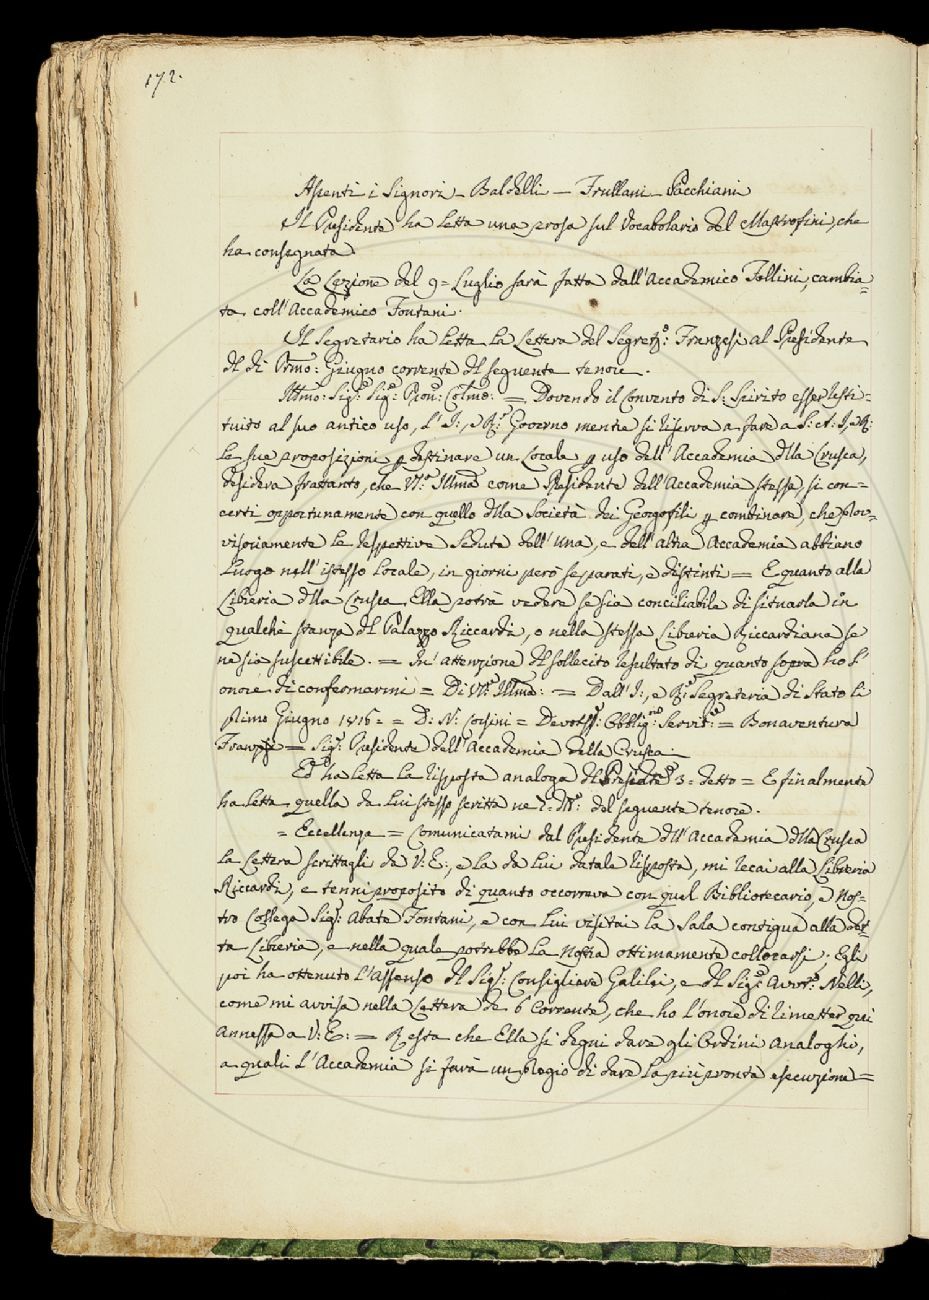 172.
Assenti i Signori - Baldelli - Frullani - Pacchiani
Il Presidente ha letta una prosa sul Vocabolario del Mastrofini, che
ha consegnata
La Lezione del 9 = Luglio sarà fatta dall'Accademico Follini, cambia=
ta coll'Accademico Fontani.
Il Segretario ha letta la Lettera del Segret.º: Franzesi al Presidente
del dì Primo: Giugno corrente del seguente tenore.
Illmo: Sig.e Sig.e Pron: Colmo: = Dovendo il Convento di S: Spirito esser resti=
tuito al suo antico uso, L'I:, e R: Governo mentre si riserva a fare a S: A: I, e R:
le sue proposizioni p destinare un Locale p uso dell'Accademia della Crusca,
desidera frattanto, che VS. Illma come Presidente dell'Accademia stessa, si con=
certi opportunamente con quello della Società dei Georgofili p combinare, che prov=
visoriamente le respettive Sedute dell'una, e dell'altra Accademia abbiano
Luogo nell'istesso Locale, in giorni però separati, e distinti = E quanto alla
Libreria della Crusca Ella potrà vedere se sia conciliabile di situarla in
qualche stanza del Palazzo Riccardi, o nella stessa Libreria Riccardiana se
ne sia suscettibile. = In attenzione del sollecito resultato di quanto sopra ho l'
onore di confermarmi = Di VS. Illma: = Dall'I:, e R: Segreteria di Stato li
primo Giugno 1816 = = D: N: Corsini = Devotiss: Obblig.mo Servit.e = Bonaventura
Franzesi = Sig.e Presidente dell'Accademia della Crusca.
Ed ha letta la risposta analoga del Presidte 3 = detto = E finalmente
ha letta quella da lui stesso scritta ne del seguente tenore.
= Eccellenza = Comunicatami dal Presidente dell'Accademia della Crusca
la Lettera scrittagli da V: E:, e la da lui datale risposta, mi recai alla Libreria
Riccardi, e tenni proposito di quanto occorreva con quel Bibliotecario, e Nos=
tro Collega Sig.e Abate Fontani, e con lui visitai la Sala contigua alla det=
ta Libreria, e nella quale potrebbe la Nostra ottimamente collocarsi; Egli
poi ha ottenuto l'assenso del Sig.e Consigliere Galilei, e del Sig.e Avvo.to Nelli,
come mi avvisa nella Lettera de 6 Corrente, che ho l'onore di rimetter qui
annessa a V: E: = Resta che Ella si degni dare gli Ordini analoghi,
a quali L'Accademia si farà un pregio di dare la più pronta esecuzione =